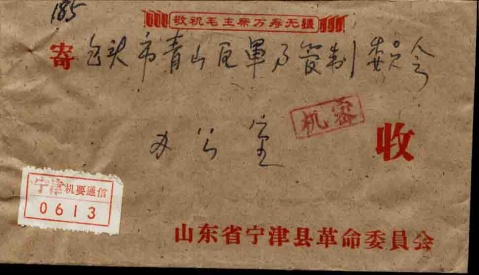 185
敬祝毛主席万寿无疆
寄 包头市青山区军事管制委员会
办公室
机密
收
宁津 机要通信
0613
山东省宁津县革命委员会